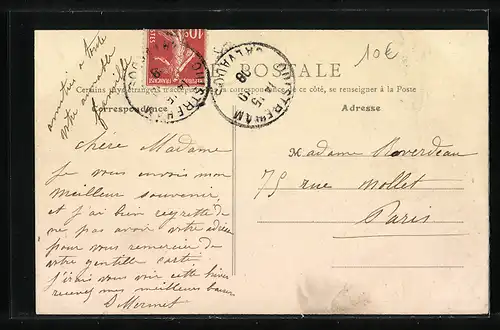 10€
amitiés à toute
votre aimable
famille
10c
CARTE POSTALE
Certains pays étrangers n'acceptent pas la correspondance de ce côté, se renseigner à la Poste
Correspondance
Adresse
OUISTREHAM
CALVADOS
OUISTREHAM
CALVADOS
15-9
08
chère Madame
Je vous envois mon
meilleur souvenir
et j'ai bien regretté de
ne pas avoir votre adresse
pour vous remercier de
votre gentille carte
J'irai vous voir cette hiver
recevez mes meilleurs baisers
D Mermet
Madame Roverdeau
75 rue Mollet
Paris